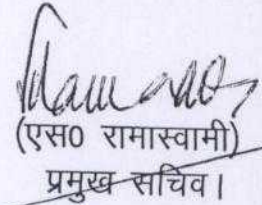 (एस0 रामास्वामी)
प्रमुख सचिव।